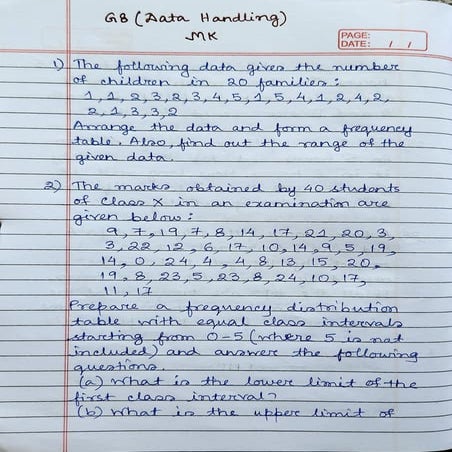 G8 (Data Handling)
MK
PAGE:
DATE: / /
1) The following data gives the number
of children in 20 families:
1, 1, 2, 3, 2, 3, 4, 5, 1, 5, 4, 1, 2, 4, 2,
2, 1, 3, 3, 2
Arrange the data and form a frequency
table. Also, find out the range of the
given data.
2) The marks obtained by 40 students
of class X in an examination are
given below:
9, 7, 19, 7, 8, 14, 17, 21, 20, 3
3, 22, 12, 6, 17, 10, 14, 9, 5, 19,
14, 0, 24, 4, 4, 8, 13, 15, 20,
19, 8, 23, 5, 23, 8, 24, 10, 17,
11, 17
Prepare a frequency distribution
table with equal class intervals
starting from 0-5 (where 5 is not
included) and answer the following
questions.
(a) What is the lower limit of the
first class interval?
(b) What is the upper limit of